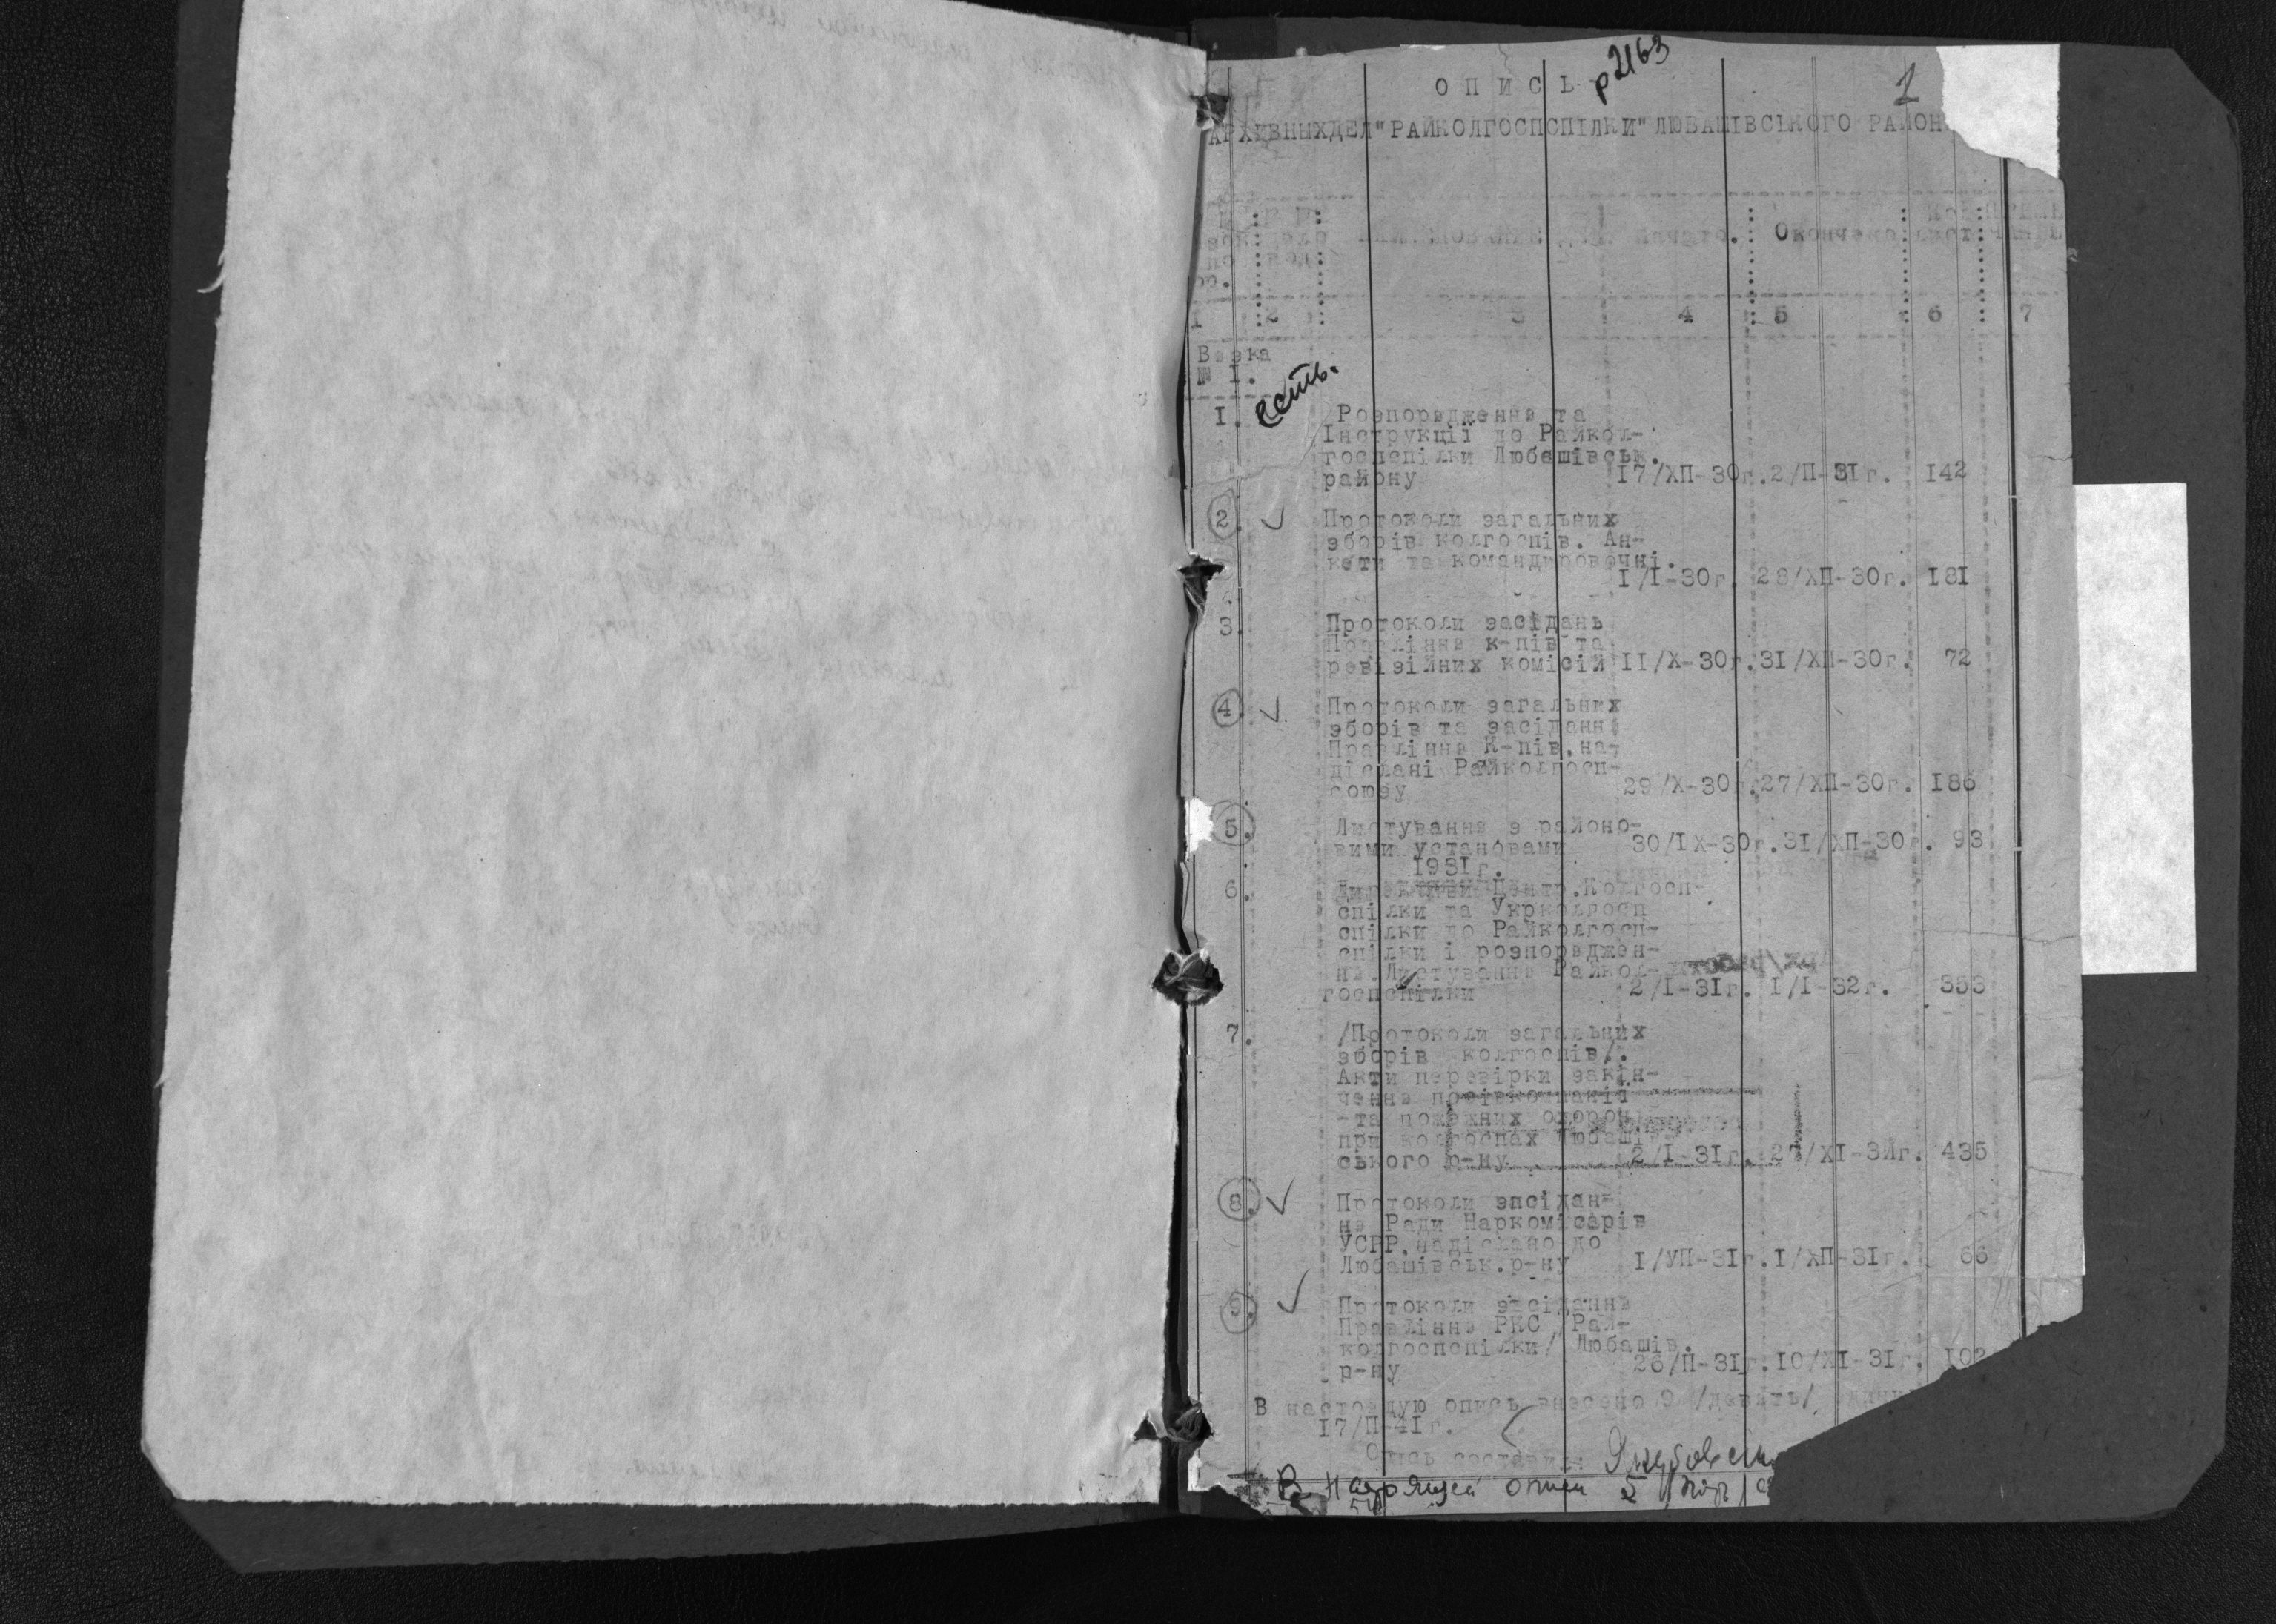 р2163
1
ОПИСЬ
АРХИВНЫХ ДЕЛ "РАЙКОЛГОСПСПІЛКИ" ЛЮБАШІВСЬКОГО РАЙОН
Начато. Окончено
1 2 3 4 5 6 7
Вязка
№ I.
есть.
I. /Розпорядження та
Інструкції до Райкол-
госпспілки Любашівськ.
району 17/ХП-30г. 2/П-31г. 142
2. Протоколи загальних
зборів колгоспів. Ан-
кети та командировочні.
I/I-30г. 28/ХП-30г. 181
3. Протоколи засідань
Правління к-пів та
ревізійних комісій II/Х-30г. 31/ХП-30г. 72
4. Протоколи загальних
зборів та засідання
Правління К-пів, на-
діслані Райколгосп-
союзу 29/Х-30г. 27/ХП-30г. 186
5. Листування з районо-
вими установами 30/IХ-30г. 31/ХП-30г. 93
1931г.
6. Директиви Центр.Колгосп-
спілки та Укрколгосп
спілки до Райколгосп-
спілки і розпоряджен-
ня. Листування Райкол-
госпспілки 2/I-31г. I/I-32г. 353
7. /Протоколи загальних
зборів колгоспів/.
Акти перевірки закін-
чення
-та пожежних охорон
при колгоспах Любашів-
ського р-ну 2/I-31г. 27/ХI-3Иг. 435
8. Протоколи засідан-
ня Ради Наркомісарів
УСРР, надіслано до
Любашівськ.р-ну I/УП-31г. I/ХП-31г. 66
9. Протоколи засідання
Правління РКС /Рай-
колгоспспілки/ Любашів.
р-ну 26/П-31г. 10/ХI-31г. 102
В настоящую опись внесено 9 /девять/ един
17/П-41г.
Опись составил: Якубовски
В настоящей описи 5